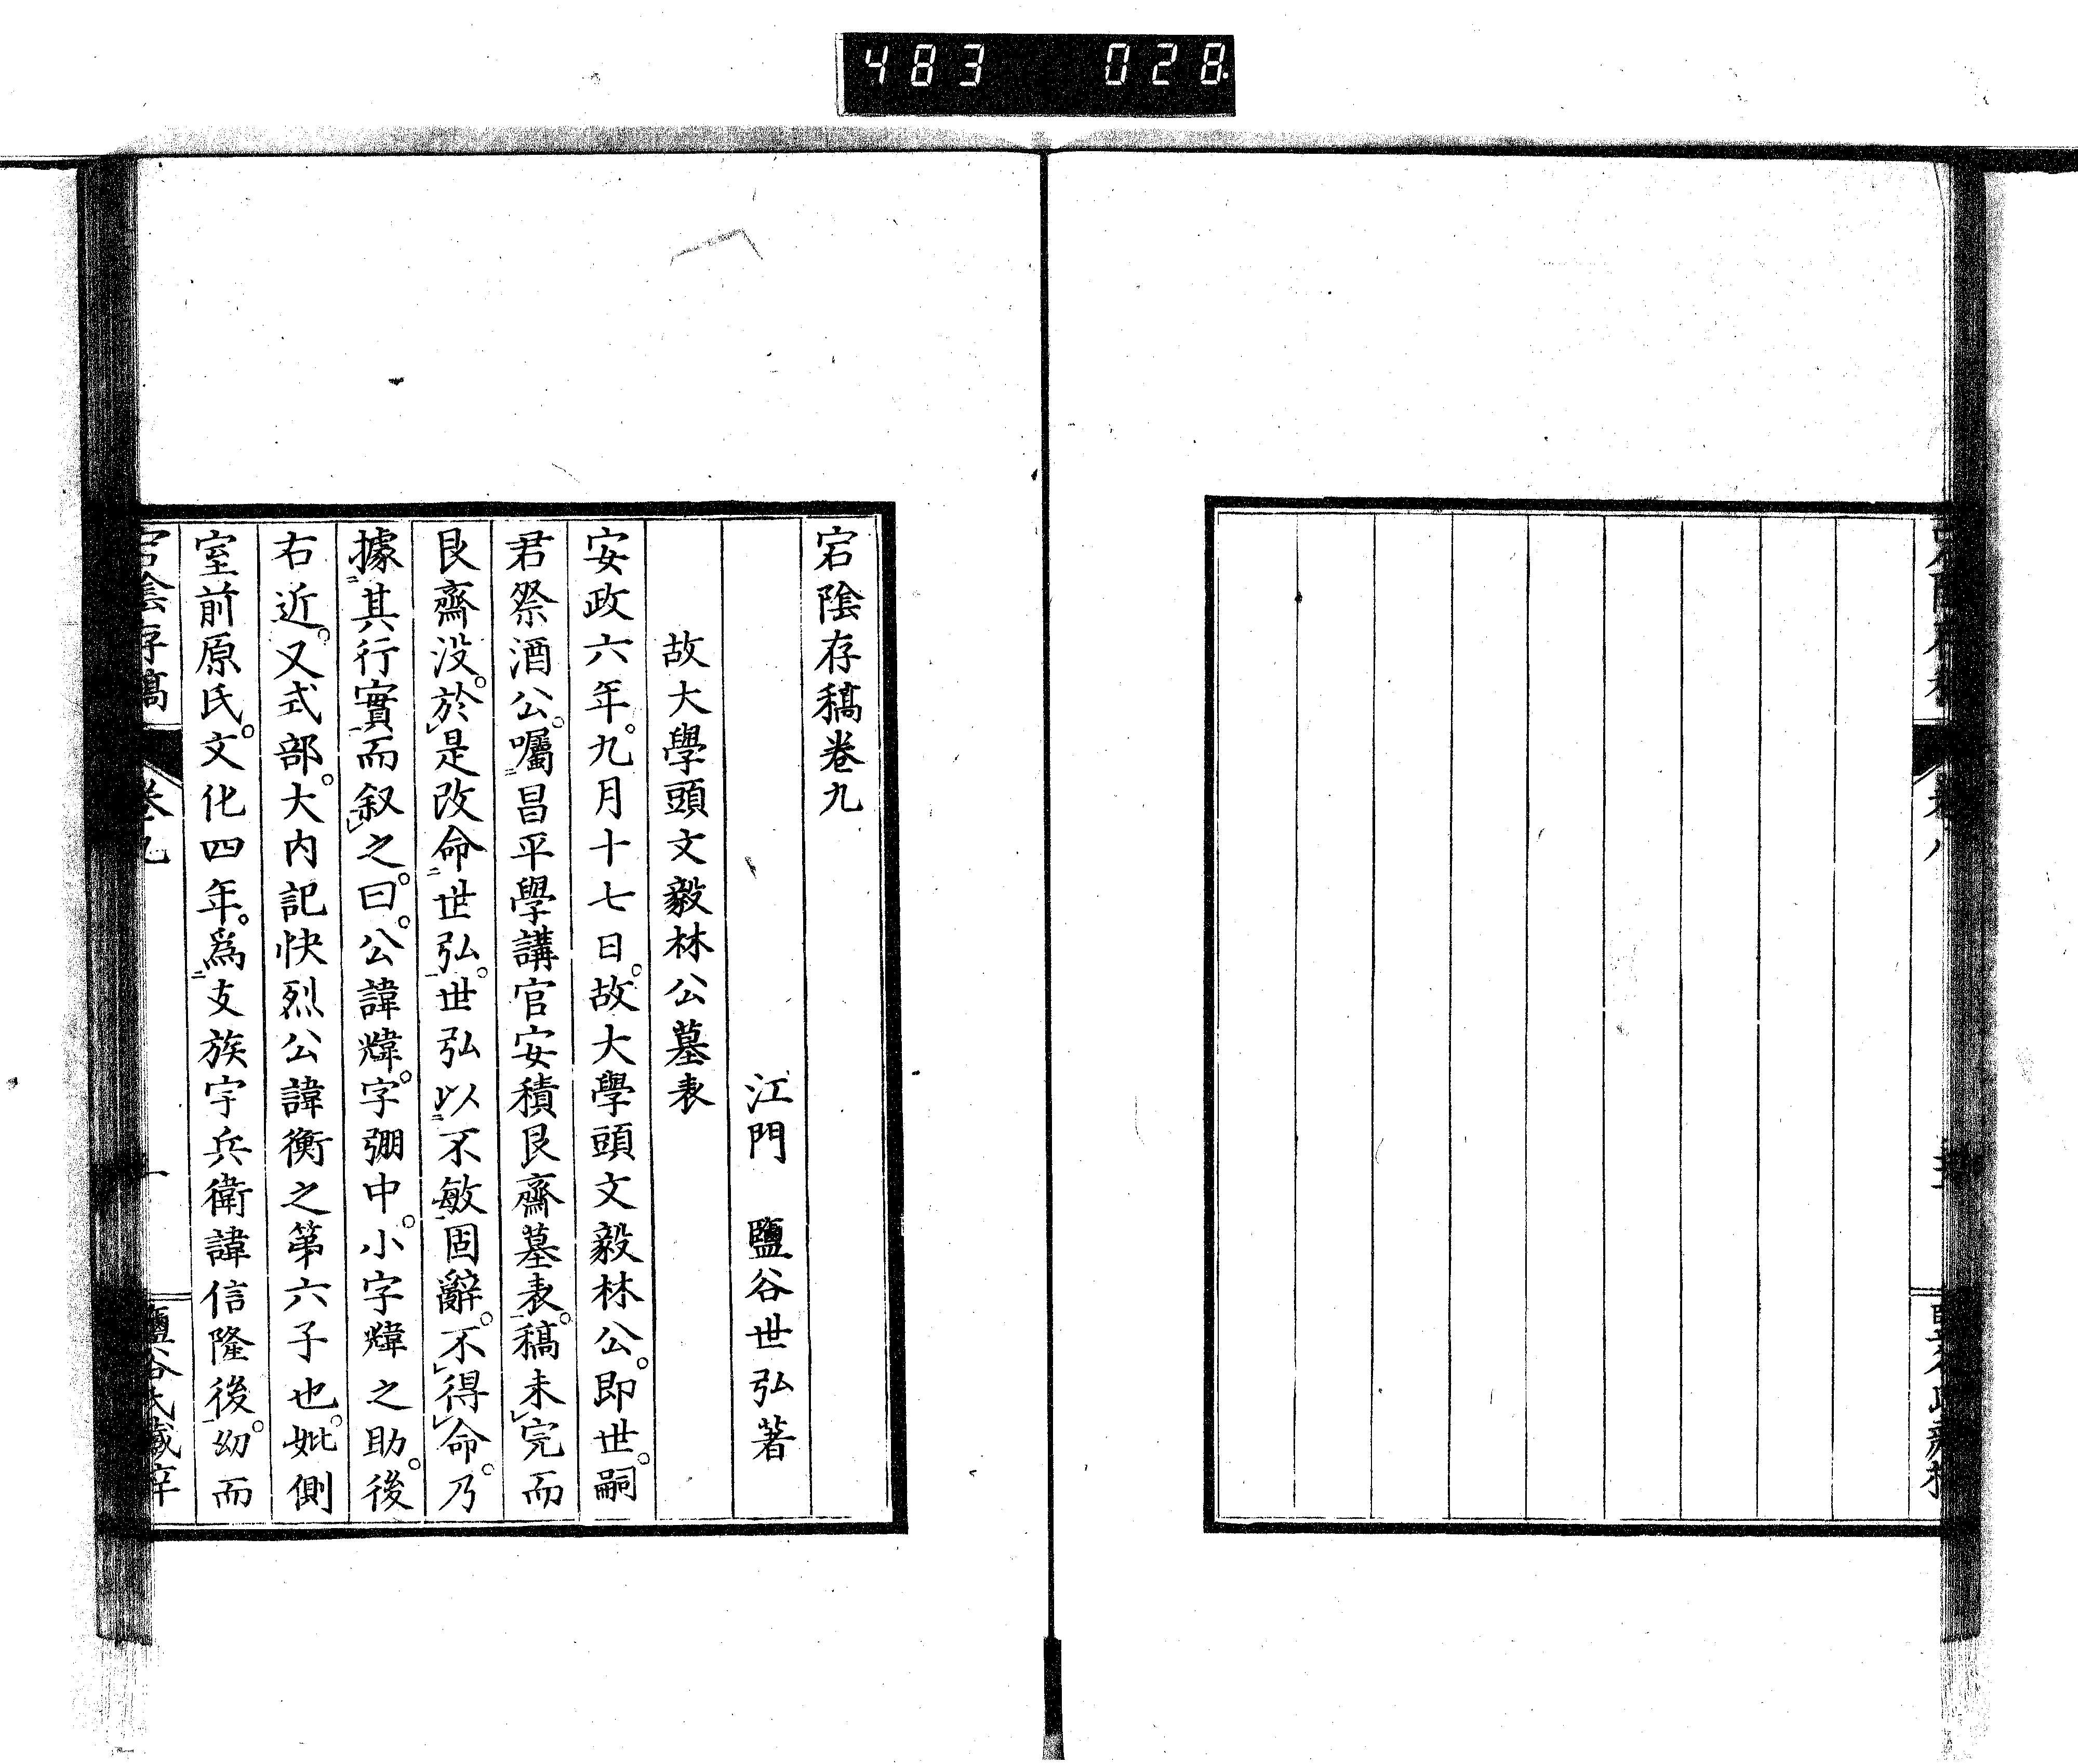 483 028
宕陰存稿卷九
江門 鹽谷世弘著
故大學頭文毅林公墓表
安政六年。九月十七日。故大學頭文毅林公。即世。嗣
君祭酒公。囑昌平學講官安積艮齋墓表。稿未完而
艮齋没。於是改命世弘。世弘以不敏固辭。不得命。乃
據其行實而叙之。曰。公諱煒。字弸中。小字煒之助。後
右近。又式部。大内記快烈公諱衡之第六子也。妣側
室前原氏。文化四年。爲支族宇兵衛諱信隆後。幼而
宕陰存稿 卷九 一 鹽谷氏藏梓